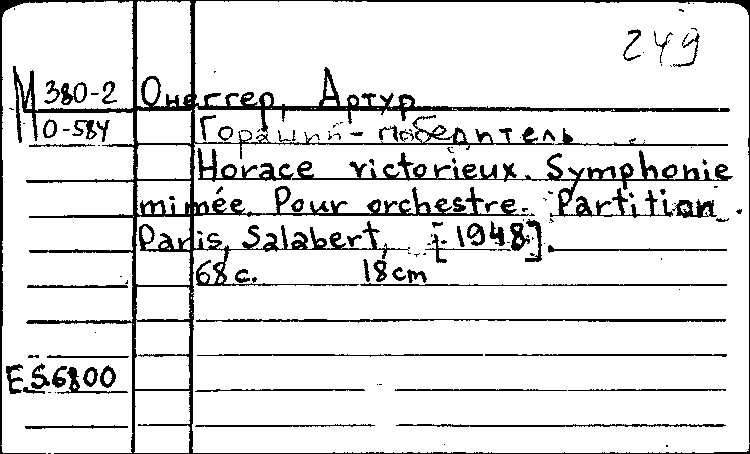 249
М 380-2 Онеггер, Артур
О-584 Гораций-победитель
Horace victorieux. Symphonie
mimée. Pour orchestre. Partition.
Paris, Salabert, [1948].
68 с. 18 cm
E.S.6800